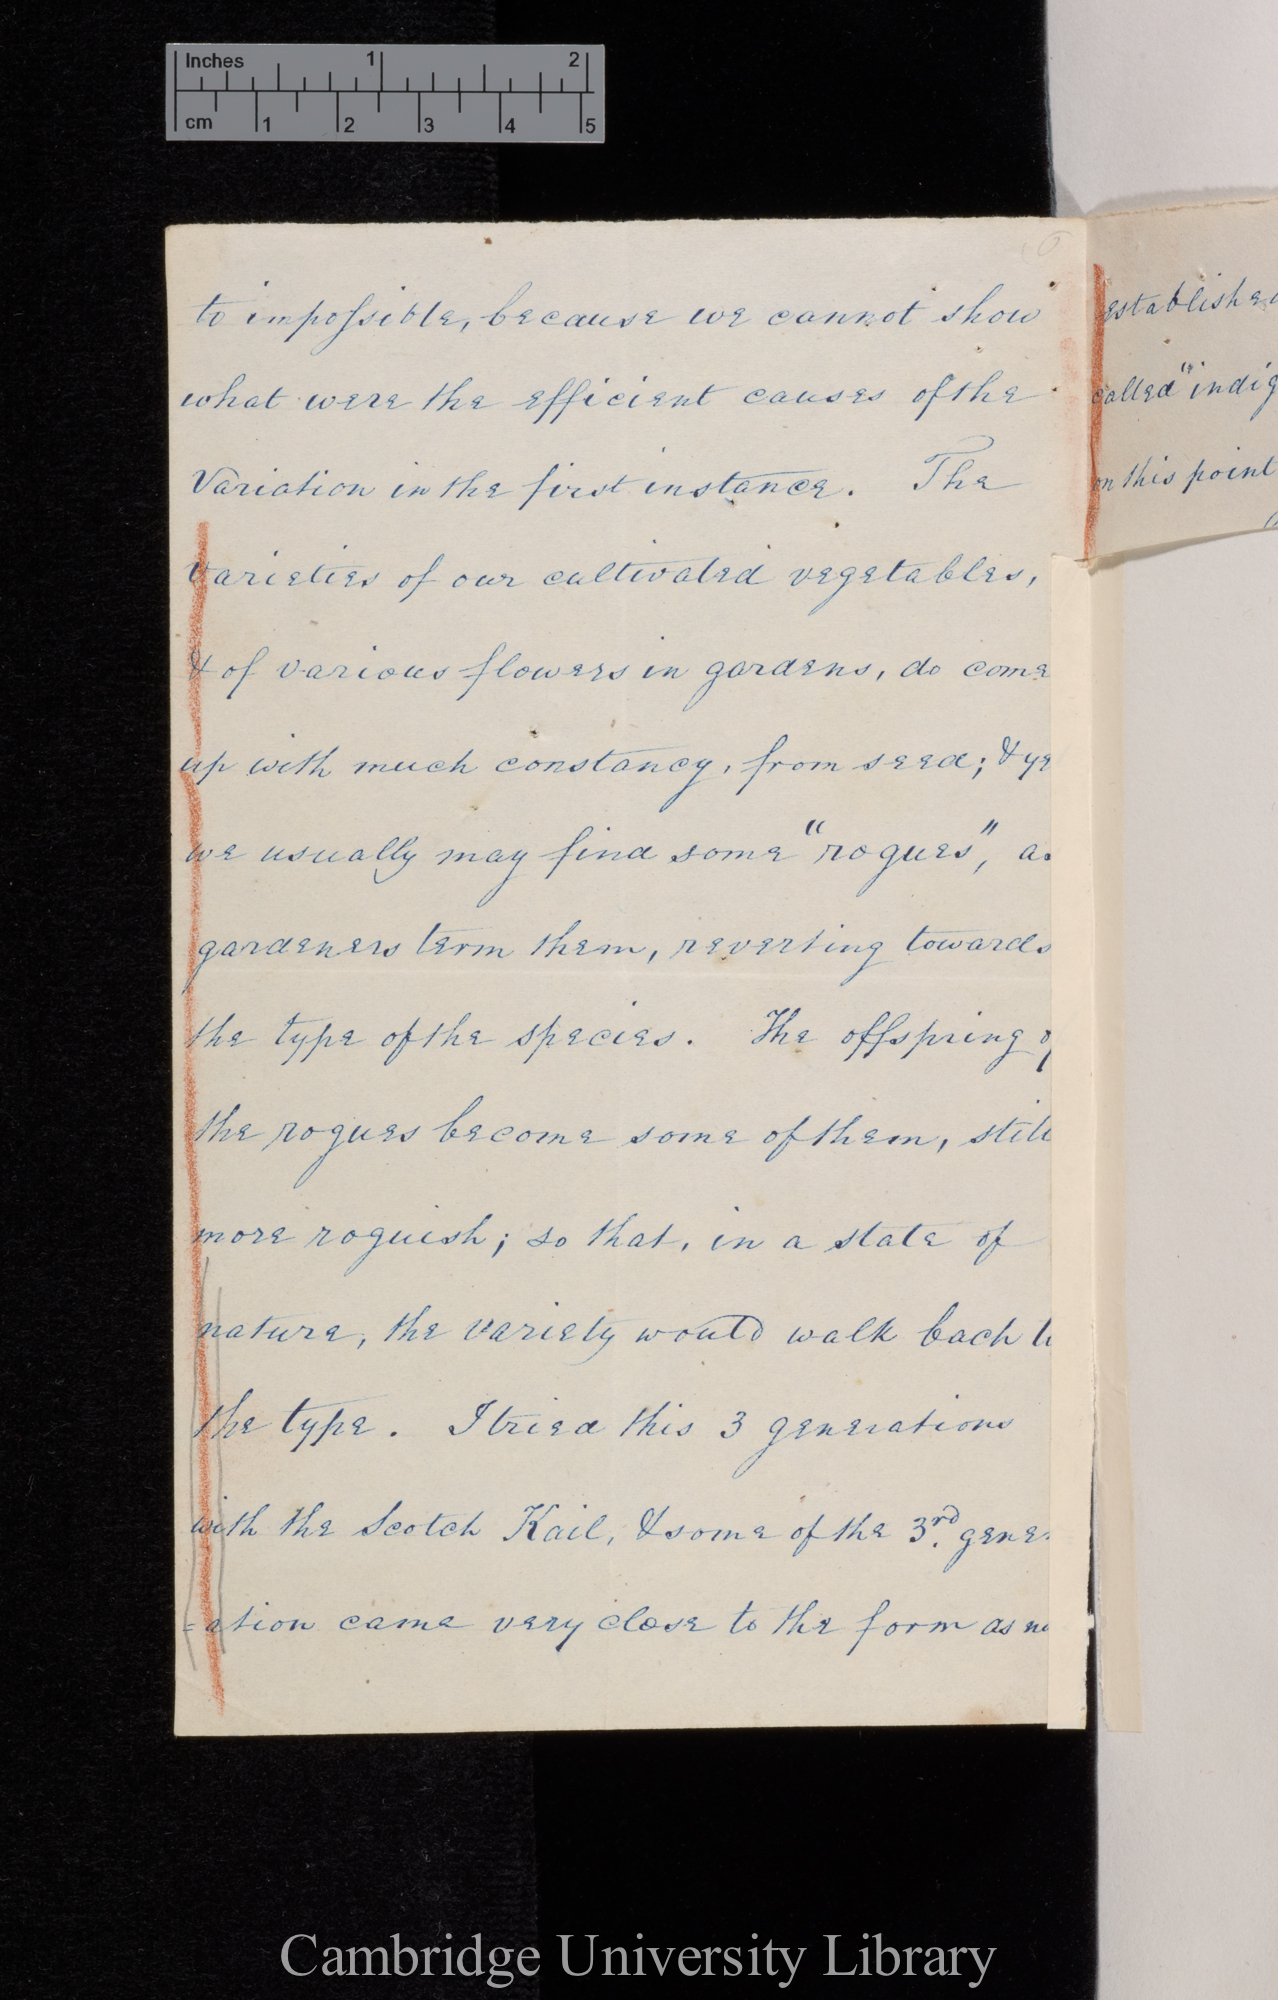 Inches 1 2
cm 1 2 3 4 5
6
to impossible, because we cannot show
what were the efficient causes of the
Variation in the first instance. The
varieties of our cultivated vegetables,
& of various flowers in gardens, do come
up with much constancy, from seed; & ye
we usually may find some "rogues", as
gardeners term them, reverting towards
the type of the species. The offspring of
the rogues become some of them, still
more roguish; so that, in a state of
nature, the variety would walk back to
the type. I tried this 3 generations
with the Scotch Kail, & some of the 3rd. gener
=ation came very close to the form as
established
called "indig
on this point
Cambridge University Library